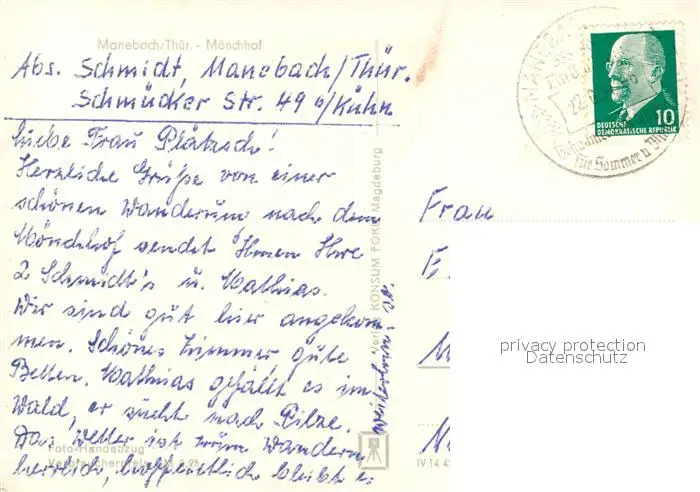 Manebach/Thür. - Mönchhof
Abs. Schmidt, Manebach/Thür.
Schmücker Str. 49 b/Kühn
Liebe Frau Plätzsch!
Herzliche Grüße von einer
schönen Wanderung nach dem
Mönchhof sendet Ihnen Ihre
2 Schmidt's u. Mathias.
Wir sind gut hier angekom-
men. Schönes Zimmer, gute
Betten. Mathias gefällt es im
Wald, er sucht nach Pilze.
Das Wetter ist zum Wandern
herrlich, hoffentlich bleibt es
weiterhin so.
Foto-Handabzug
Verbraucherpreis
KONSUM FOKO Magdeburg
IV 14 4
MANEBACH
22
für Sommer u.
10
DEUTSCHE
DEMOKRATISCHE REPUBLIK
Frau
E.
privacy protection
Datenschutz